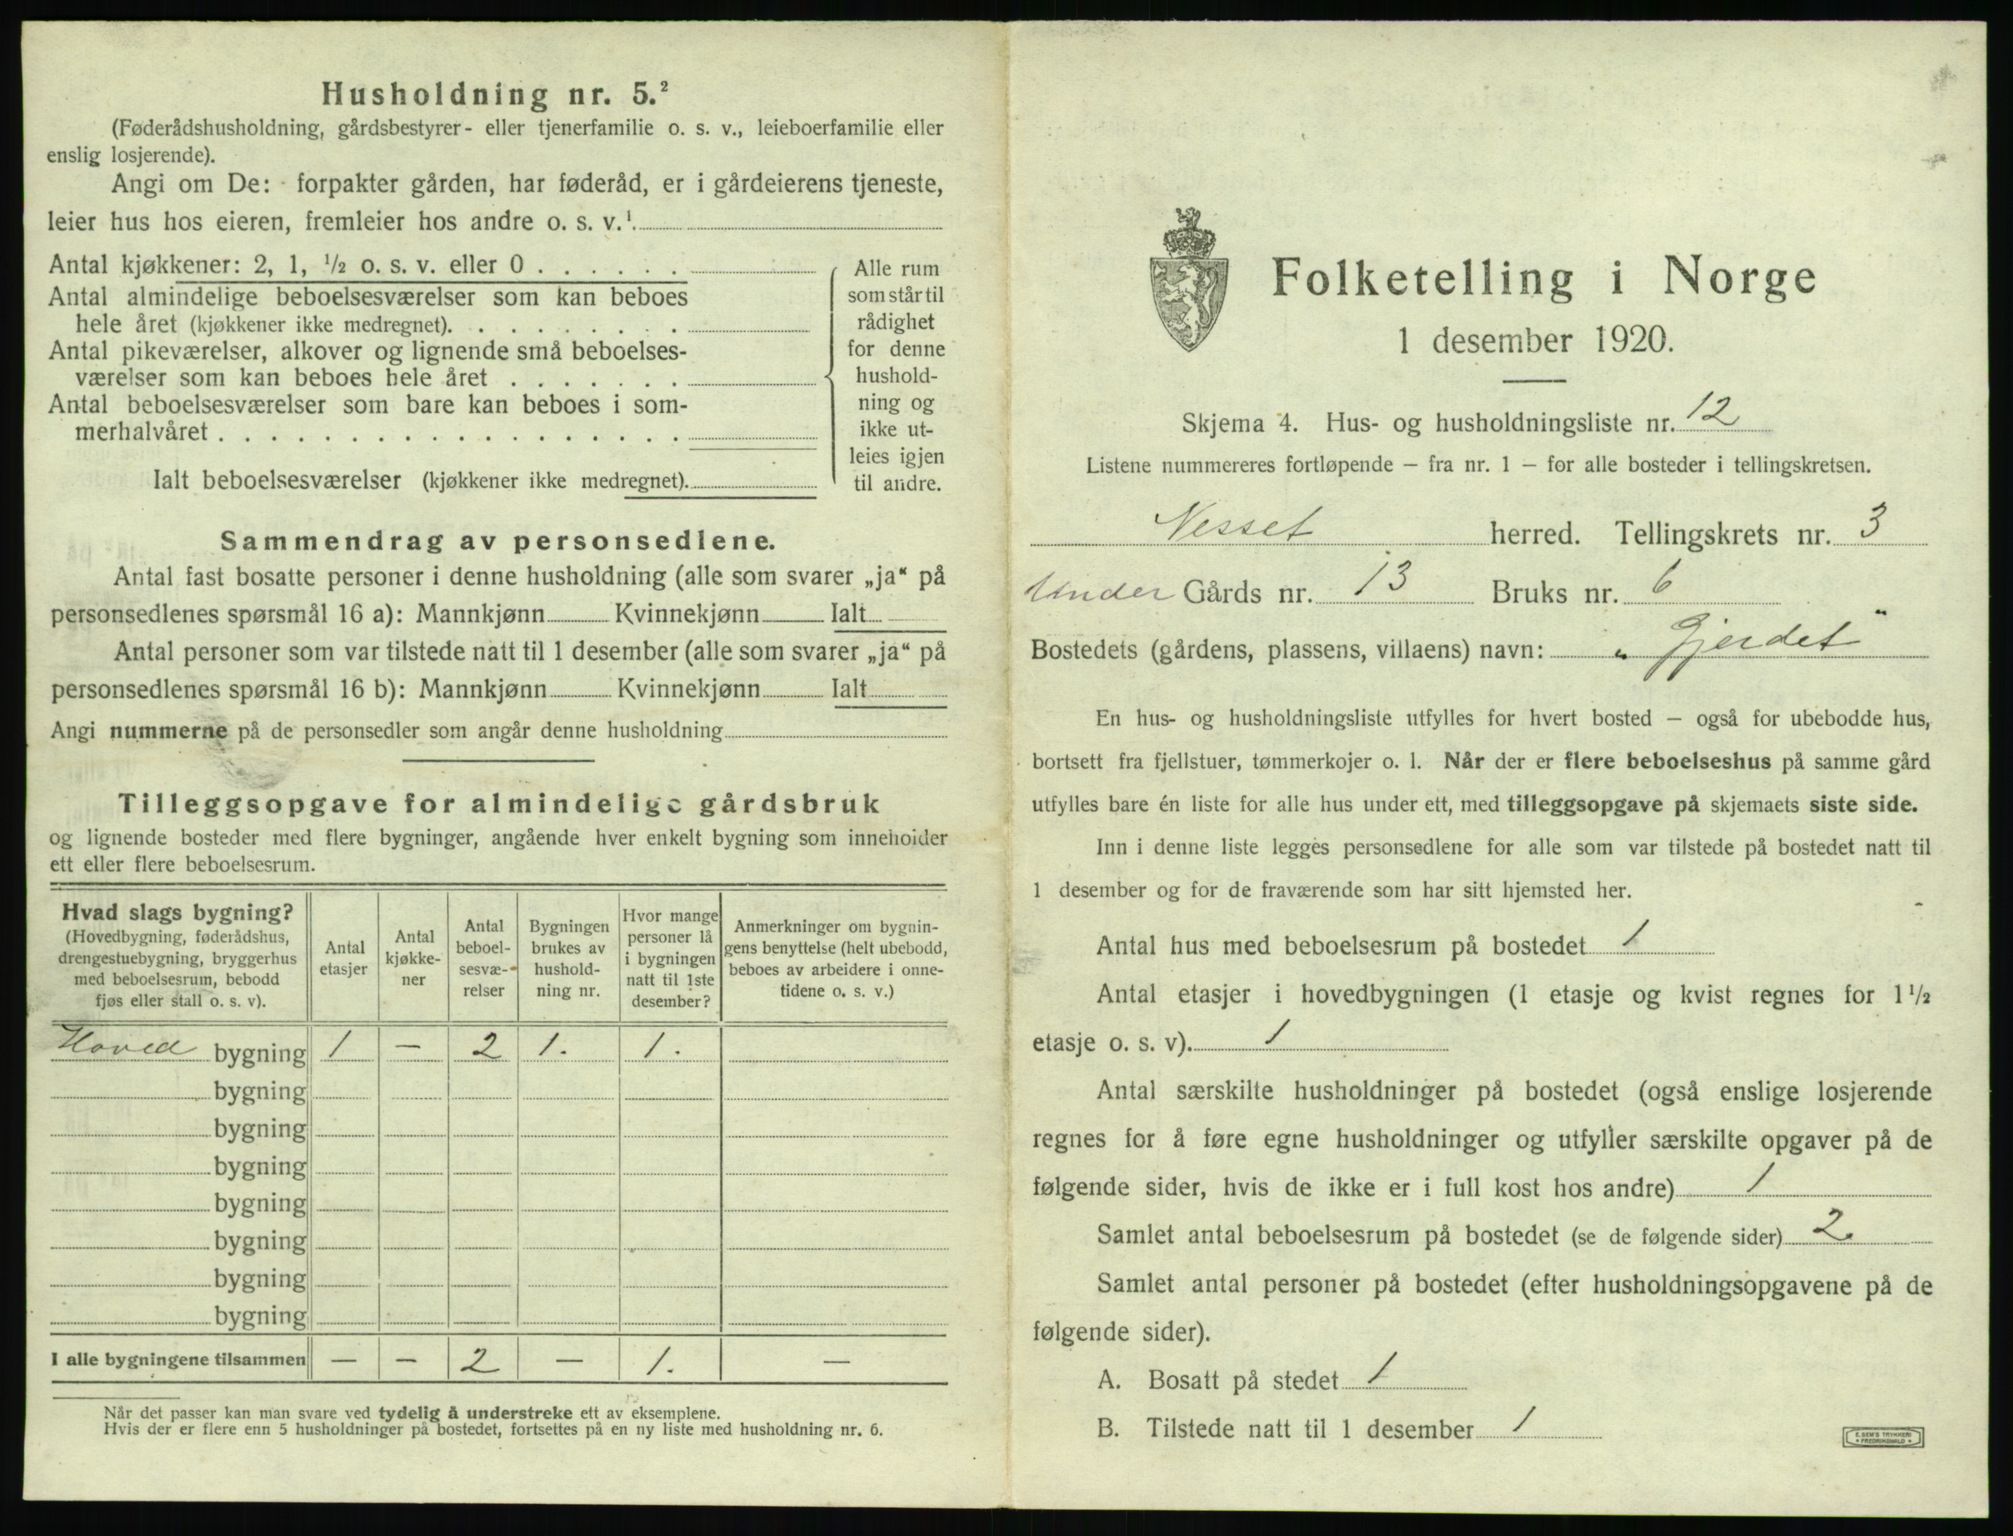 Husholdning nr. 5.²
(Føderådshusholdning, gårdsbestyrer- eller tjenerfamilie o. s. v., leieboerfamilie eller
enslig losjerende).
Angi om De: forpakter gården, har føderåd, er i gårdeierens tjeneste,
leier hus hos eieren, fremleier hos andre o. s. v.¹
Antal kjøkkener: 2, 1, ½ o. s. v. eller 0 . . . . . .
Antal almindelige beboelsesværelser som kan beboes
hele året (kjøkkener ikke medregnet). . . . . . . . .
Antal pikeværelser, alkover og lignende små beboelses-
værelser som kan beboes hele året . . . . . . .
Antal beboelsesværelser som bare kan beboes i som-
merhalvåret . . . . . . . . . . . . . . . . . .
Ialt beboelsesværelser (kjøkkener ikke medregnet).
Alle rum
som står til
rådighet
for denne
hushold-
ning og
ikke ut-
leies igjen
til andre.
Sammendrag av personsedlene.
Antal fast bosatte personer i denne husholdning (alle som svarer „ja“ på
personsedlenes spørsmål 16 a): Mannkjønn Kvinnekjønn Ialt
Antal personer som var tilstede natt til 1 desember (alle som svarer „ja“ på
personsedlenes spørsmål 16 b): Mannkjønn Kvinnekjønn Ialt
Angi nummerne på de personsedler som angår denne husholdning
Tilleggsopgave for almindelige gårdsbruk
og lignende bosteder med flere bygninger, angående hver enkelt bygning som inneholder
ett eller flere beboelsesrum.
Hvad slags bygning?
(Hovedbygning, føderådshus,
drengestuebygning, bryggerhus
med beboelsesrum, bebodd
fjøs eller stall o. s. v).
Antal
etasjer
Antal
kjøkke-
ner
Antal
beboel-
sesvæ-
relser
Bygningen
brukes av
hushold-
ning nr.
Hvor mange
personer lå
i bygningen
natt til 1ste
desember?
Anmerkninger om bygnin-
gens benyttelse (helt ubebodd,
beboes av arbeidere i onne-
tidene o. s. v.)
Hoved bygning 1 — 2 1. 1.
bygning
bygning
bygning
bygning
bygning
bygning
bygning
I alle bygningene tilsammen — — 2 — 1. —
Når det passer kan man svare ved tydelig å understreke ett av eksemplene.
Hvis der er flere enn 5 husholdninger på bostedet, fortsettes på en ny liste med husholdning nr. 6.
Folketelling i Norge
1 desember 1920.
Skjema 4. Hus- og husholdningsliste nr. 12
Listene nummereres fortløpende – fra nr. 1 – for alle bosteder i tellingskretsen.
Nesset herred. Tellingskrets nr. 3
Under Gårds nr. 13 Bruks nr. 6
Bostedets (gårdens, plassens, villaens) navn: „Gjerdet"
En hus- og husholdningsliste utfylles for hvert bosted – også for ubebodde hus,
bortsett fra fjellstuer, tømmerkojer o. l. Når der er flere beboelseshus på samme gård
utfylles bare én liste for alle hus under ett, med tilleggsopgave på skjemaets siste side.
Inn i denne liste legges personsedlene for alle som var tilstede på bostedet natt til
1 desember og for de fraværende som har sitt hjemsted her.
Antal hus med beboelsesrum på bostedet 1
Antal etasjer i hovedbygningen (1 etasje og kvist regnes for 1½
etasje o. s. v). 1
Antal særskilte husholdninger på bostedet (også enslige losjerende
regnes for å føre egne husholdninger og utfyller særskilte opgaver på de
følgende sider, hvis de ikke er i full kost hos andre) 1
Samlet antal beboelsesrum på bostedet (se de følgende sider) 2.
Samlet antal personer på bostedet (efter husholdningsopgavene på de
følgende sider).
A. Bosatt på stedet 1
B. Tilstede natt til 1 desember 1
E. SEM'S TRYKKERI
FREDRIKSHALD